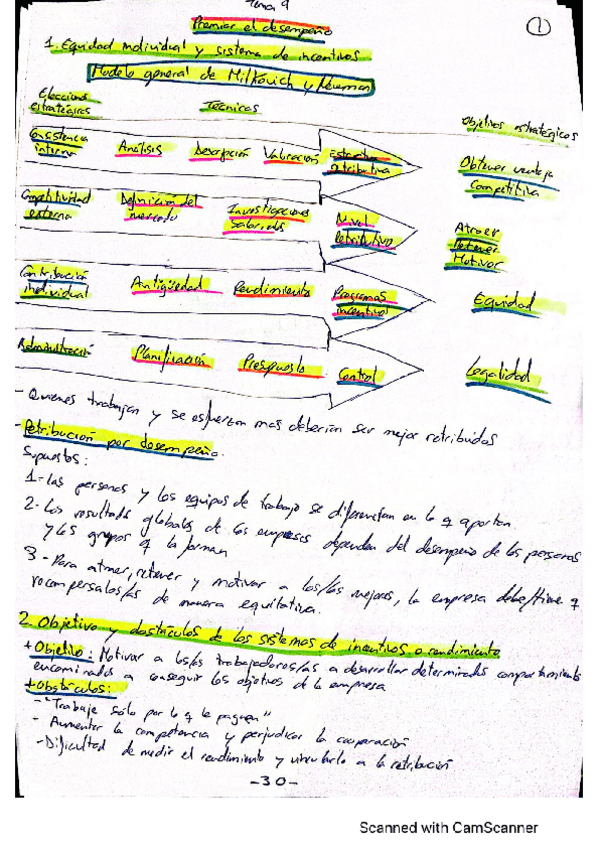 Tema 9
Premiar el desempeño
1
1. Equidad individual y sistema de incentivos
Modelo general de Milkovich y Newman
Elecciones estratégicas
Técnicas
Objetivos estratégicos
Consistencia interna
Análisis
Descripción
Valoración
Estructura retributiva
Obtener ventaja Competitiva
Competitividad externa
Definición del mercado
Investigaciones Salariales
Nivel Retributivo
Atraer
Retener
Motivar
Contribución individual
Antigüedad
Rendimiento
Programas incentivo
Equidad
Administración
Planificación
Presupuesto
Control
Legalidad
- Quienes trabajan y se esfuerzan mas deberían ser mejor retribuidos
- Retribución por desempeño.
Supuestos:
1- Las personas y los equipos de trabajo se diferencian en lo q aportan.
2- Los resultados globales de las empresas dependen del desempeño de las personas
y los grupos q la forman
3- Para atraer, retener y motivar a los/las mejores, la empresa debe/tiene q
recompensalos/as de manera equitativa.
2. Objetivo y obstáculos de los sistemas de incentivos o rendimiento
+ Objetivo: Motivar a los/as trabajadores/as a desarrollar determinados comportamientos
encaminados a conseguir los objetivos de la empresa
+ Obstáculos:
- "Trabaje sólo por lo q le paguen"
- Aumentar la competencia y perjudicar la cooperación
- Dificultad de medir el rendimiento y vincularlo a la retribución
-30-
Scanned with CamScanner